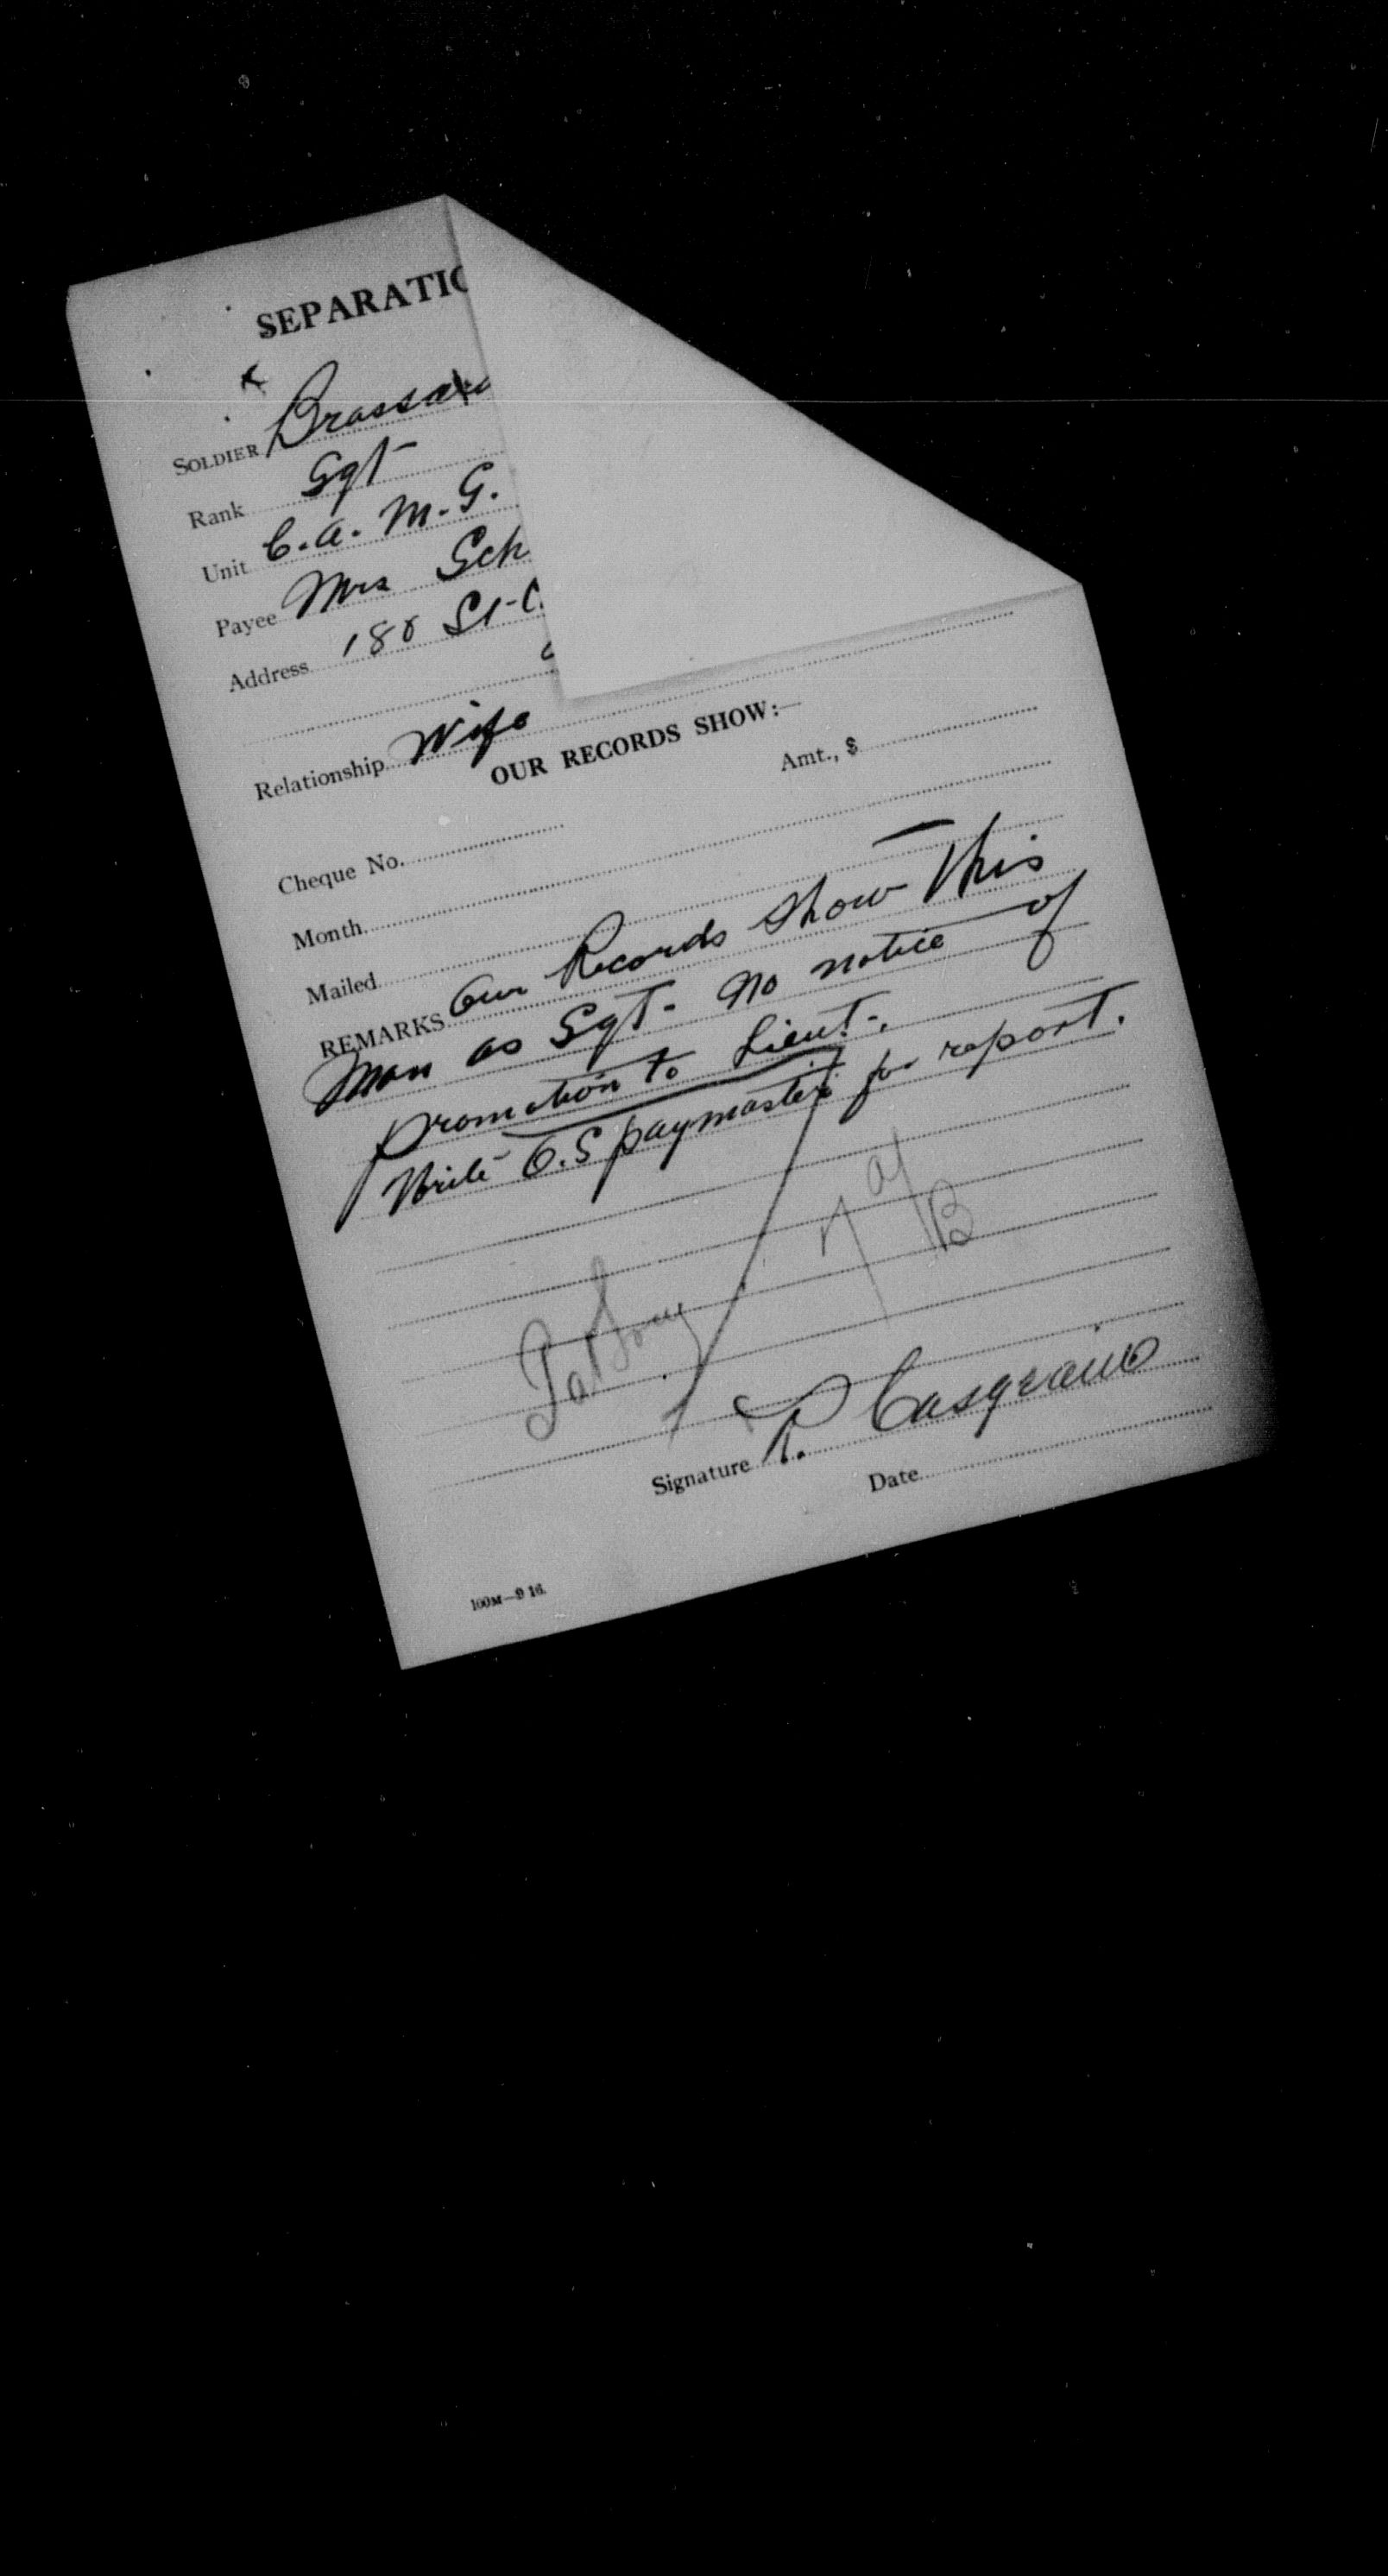 SEPARATIO
SOLDIER Brassar
Rank Sgt
Unit C.A.M.G.
Payee Mrs Sch
Address 188 St-C
Relationship Wife
OUR RECORDS SHOW:—
Cheque No. Amt., $
Month
Mailed
REMARKS Our Records show This
Man as Sgt- No notice of
promotion to Lieut-.
Write O.S paymaster for report.
Signature Casgrain
Date
100M—9 16.